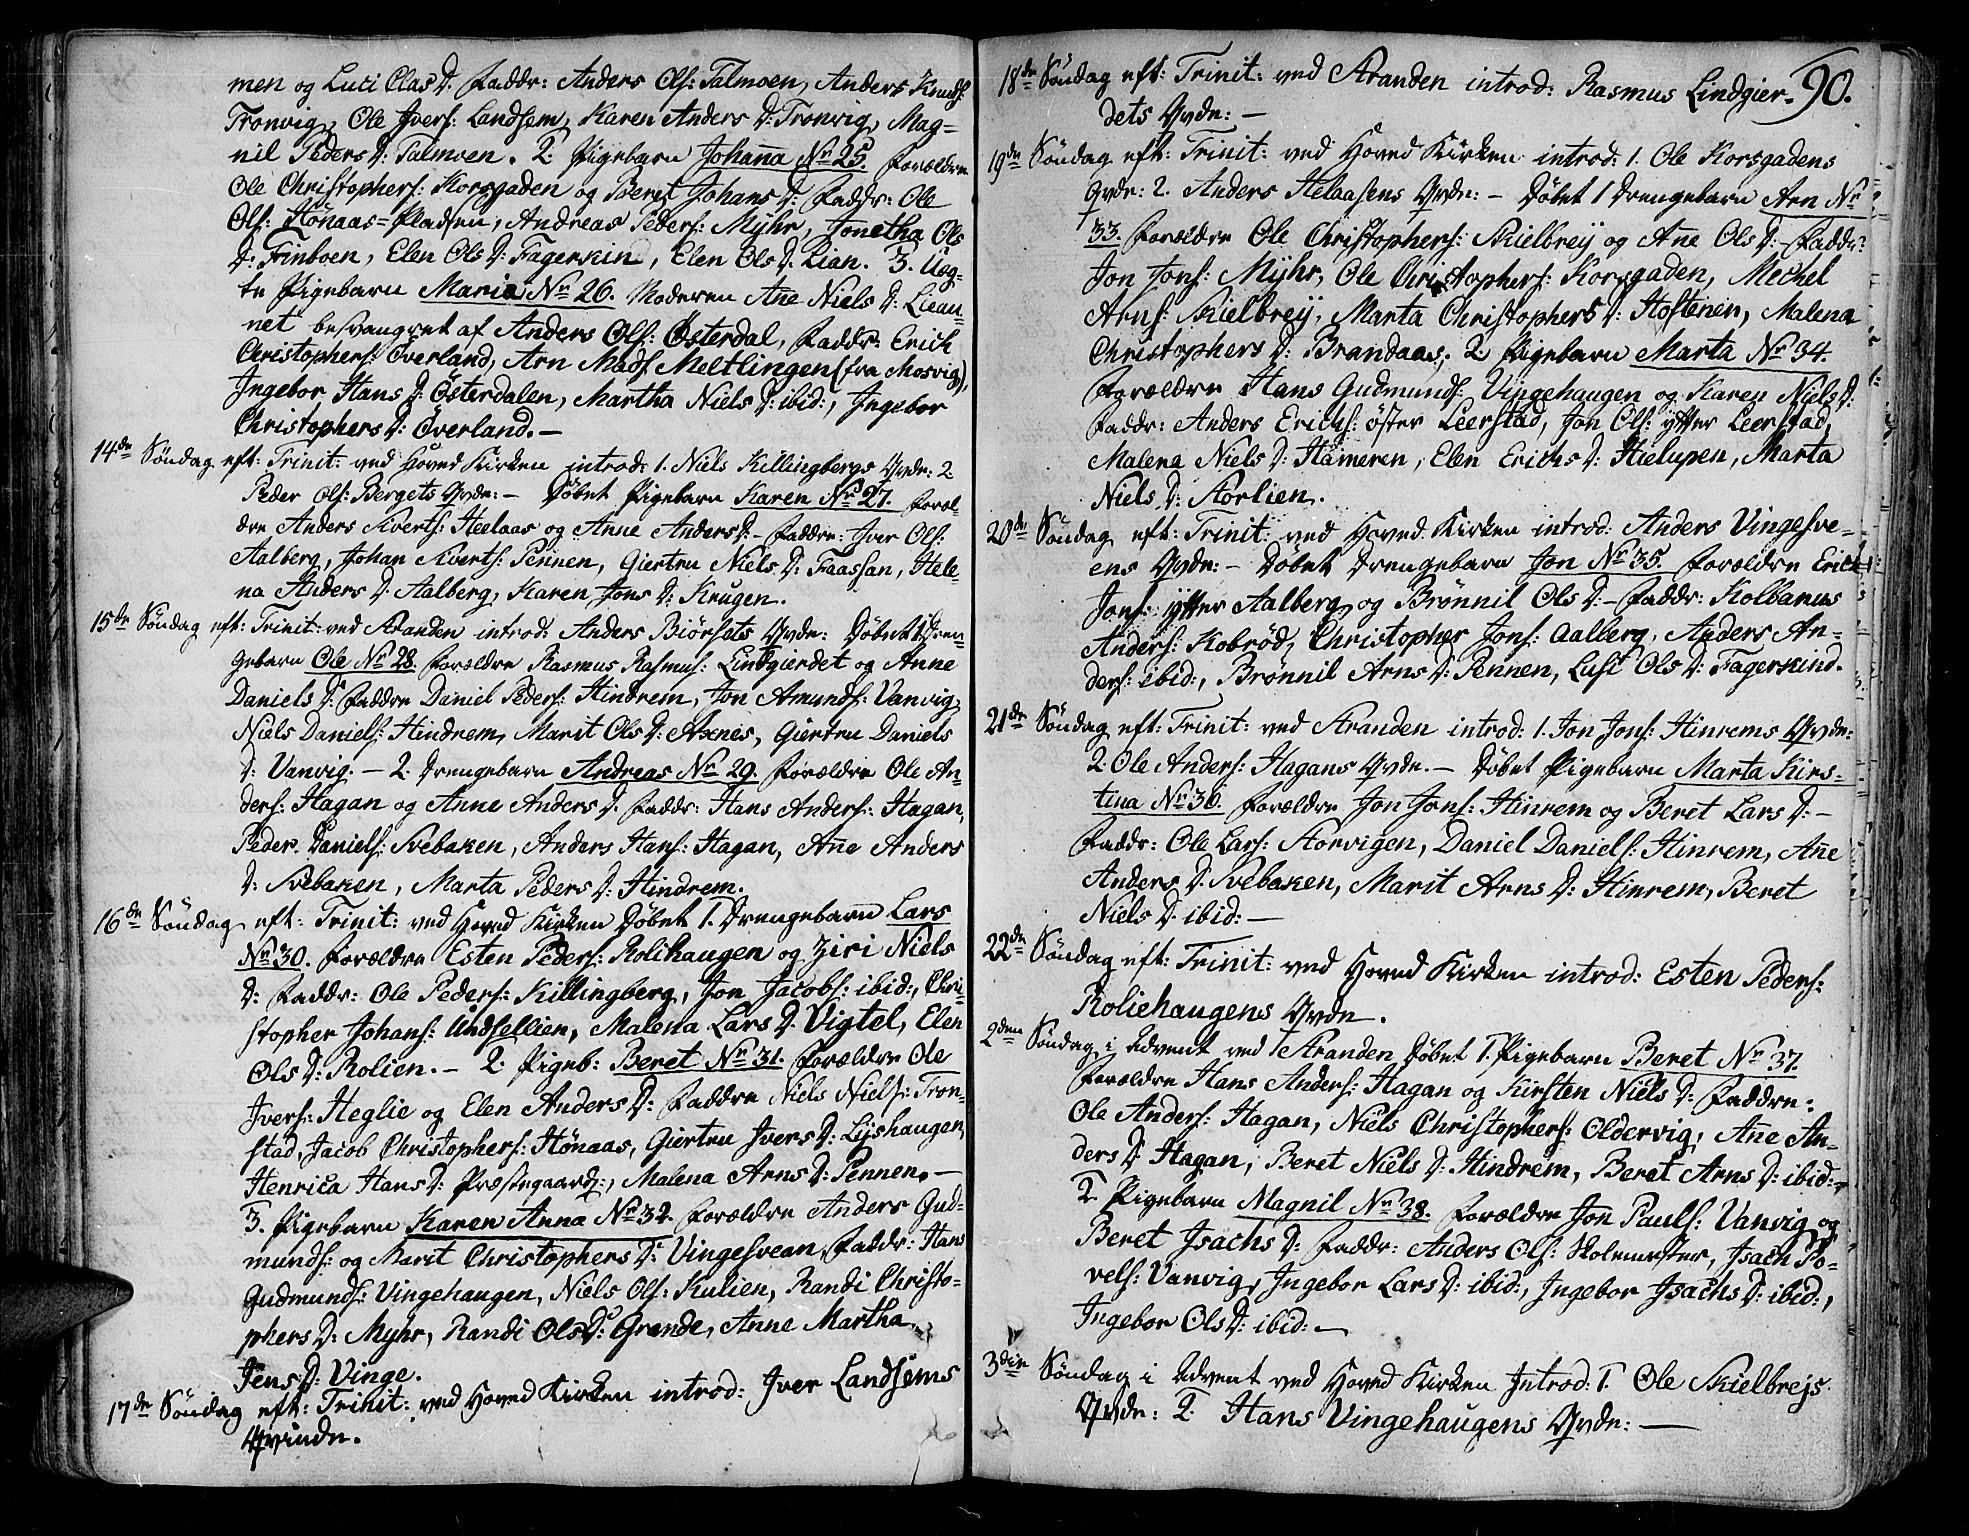 men og Luci ClasD: Faddr: Anders Ols: Talmoen, Anders Knuds:
Tronvig, Ole Jvers: Landsem, Karen AndersD: Tronvig, Mag=
nil PedersD: Talmoen. 2. Pigebarn Johaña No 25. Forældre
Ole Christophers: Korsgaden og Beret JohansD: Faddr: Ole
Ols: Hönaas=Pladsen, Andreas Peders: Myhr, Jonetha Ols
D: Finboen, Elen OlsD: Fagerskin, Elen OlsD: Lian. 3. Uæg-
te Pigebarn Maria No 26. Moderen Añe NielsD: Lieau-
net besvangret af Anders Ols: Österdal, Faddr: Erich
Christophers: Överland, Arn Mads: Meltlingen (fra Mosvig),
Jngebor HansD: Österdalen, Martha NielsD: ibid:, Jngebor
ChristophersD: Överland.—
14de Söndag eft: Trinit: ved Hoved Kirken introd: 1. Niels Killingbergs Qvde: 2
Peder Ols: Bergets Qvde:— Döbet Pigebarn Karen No 27. Foræl-
dre Anders Sverts: Heelaas og Anne AndersD:— Faddre: Jver Ols:
Aalberg, Johan Sverts: Pennen, Giertru NielsD: Faassan, Hele-
na AndersD: Aalberg, Karen JonsD: Krugen.
15de Söndag eft: Trinit: ved Stranden introd: Anders Biörsets Qvde: Döbet 1 Dren-
gebarn Ole No 28. Forældre Rasmus Rasmus: Lindgierdet og Anne
DanielsD: Faddre Daniel Peders: Hindrem, Jon Amunds: Vanvig,
Niels Daniels: Hindrem, Marit OlsD: Axnes, Giertru Daniels
D: Vanvig. — 2. Drengebarn Andreas No 29. Forældre Ole An-
ders: Hagan og Anne AndersD: Faddr: Hans Anders: Hagan,
Peder Daniels: Svebaken, Anders Hans: Hagan, Añe Anders
D: Svebaken, Marta PedersD: Hindrem.
16de Söndag eft: Trinit: ved Hoved Kirken Döbet 1. Drengebarn Lars
No 30. Forældre Esten Peders: Rolihaugen og Ziri Niels
D: Faddr: Ole Peders: Killingberg, Jon Jacobs: ibid:, Chri-
stopher Johans: Undsellien, Malena LarsD: Vigtel, Elen
OlsD: Rolien. — 2. Pigeb: Beret No 31. Forældre Ole
Jvers: Heglie og Elen AndersD: Faddre Niels Niels: Tron-
stad, Jacob Christophers: Hönaas, Giertru JversD: Lyshaugen,
Henrica HansD: Præstegaard:, Malena ArnsD: Pennen.—
3. Pigebarn Karen Anna No 32. Forældre Anders Gud-
munds: og Marit ChristophersD: Vingesvean, Faddr: Hans
Gudmunds: Vingehaugen, Niels Ols: Kulien, Randi Christo-
phersD: Myhr, Randi OlsD: Grande, Anne Martha
JensD: Vinge.
17de Söndag eft: Trinit: ved Hoved Kirken introd: Jver Landsems
Qvinde.
90.
18de Söndag eft: Trinit: ved Stranden introd: Rasmus Lindgier-
dets Qvde:—
19de Söndag eft: Trinit: ved Hoved Kirken introd: 1. Ole Korsgadens
Qvde: 2. Anders Helaasens Qvde:— Döbet 1 Drengebarn Arn No
33. Forældre Ole Christophers: Skielbrey og Añe OlsD:— Faddr:
Jon Jons: Myhr, Ole Christophers: Korsgaden, Mechel
Arns: Skielbrey, Marta ChristophersD: Hostenen, Malena
ChristophersD: Brandaas; 2. Pigebarn Marta No 34.
Forældre Hans Gudmunds: Vingehaugen og Karen NielsD:
Faddr: Anders Erichs: öster Leerstad, Jon Ols: ytter Leerstad,
Malena NielsD: Hameren, Elen ErichsD: Hielupen, Marta
NielsD: Storlien.
20de Söndag eft: Trinit: ved Hoved Kirken introd: Anders Vingesve-
ens Qvde:— Döbet Drengebarn Jon No 35. Forældre Erich
Jons: ytter Aalberg og Brønnil OlsD:— Faddr: Kolbanus
Anders: Kobrød, Christopher Jons: Aalberg, Anders An-
ders: ibid:, Brönnil ArnsD: Pennen, Lusi OlsD: Fagerskind.
21de Söndag eft: Trinit: ved Stranden introd: 1. Jon Jons: Hinrems Qvde:
2 Ole Anders: Hagans Qvde.— Döbet Pigebarn Marta Kirs-
tina No 36. Forældre Jon Jons: Hinrem og Beret LarsD:—
Faddr: Ole Lars: Storvigen, Daniel Daniels: Hinrem, Añe
AndersD: Svebaken, Marit ArnsD: Hinrem, Beret
NielsD: ibid:—
22de Söndag eft: Trinit: ved Hoved Kirken introd: Esten Peders:
Roliehaugens Qvde.
2den Söndag i Advent ved Stranden Döbet 1. Pigebarn Beret No 37.
Forældre Hans Anders: Hagan og Kirsten NielsD: Faddre:
Ole Anders: Hagan, Niels Christophers: Oldervig, Añe An-
dersD: Hagan, Beret NielsD: Hindrem, Beret ArnsD: ibid:—
2. Pigebarn Magnil No 38. Forældre Jon Pauls: Vanvig og
Beret JsachsD: Faddr: Anders Ols: Skolemester, Jsach Po-
vels: Vanvig, Jngebor LarsD: ibid:, Jngebor JsachsD: ibid:,
Jngebor OlsD: ibid:—
3die Söndag i Advent ved Hoved Kirken Jntrod: 1. Ole Skielbreys
Qvde: 2. Hans Vingehaugens Qvde:—